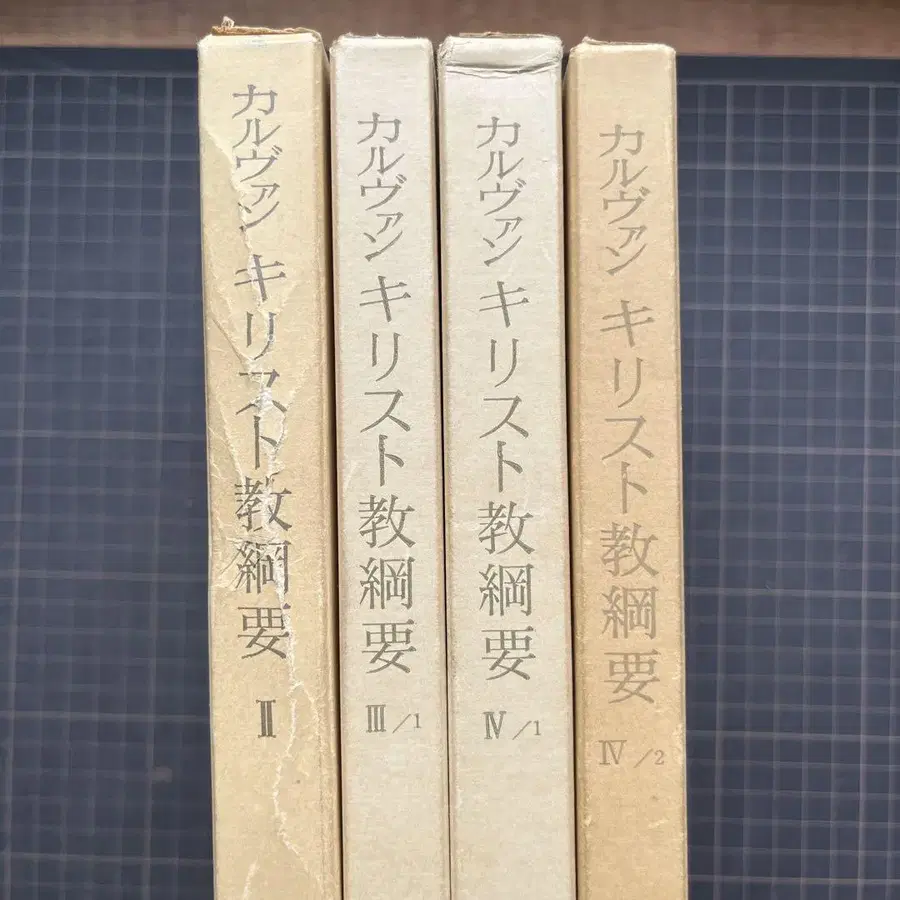 カルヴァン キリスト教綱要 Ⅱ
カルヴァン キリスト教綱要 Ⅲ/1
カルヴァン キリスト教綱要 Ⅳ/1
カルヴァン キリスト教綱要 Ⅳ/2